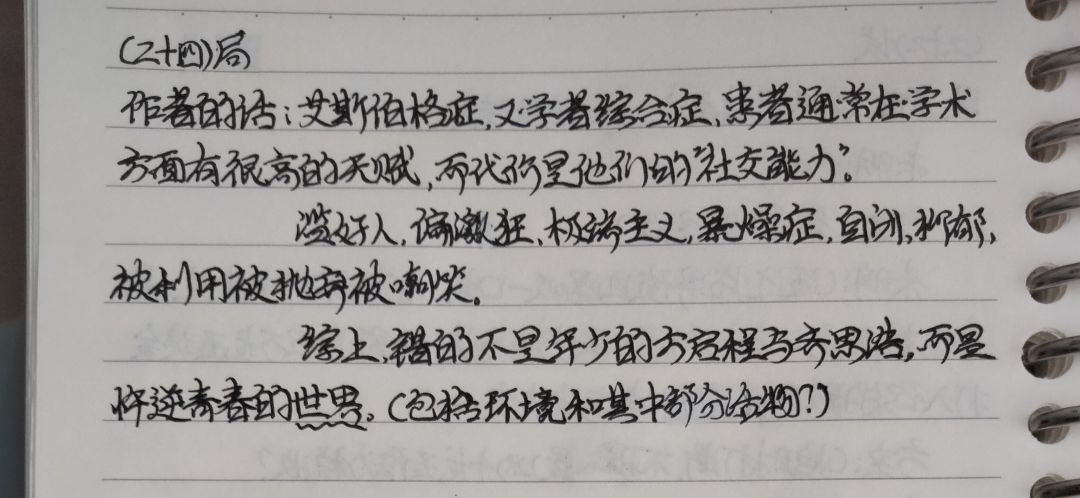 (二十四)局
作者的话:艾斯伯格症,又学者综合症,患者通常在学术
方面有很高的天赋,而代价是他们的"社交能力"。
滥好人,偏激狂,极端主义,暴燥症,自闭,抑郁,
被利用被抛弃被嘲笑。
综上,错的不是年少的方启程与齐思浩,而是
忤逆青春的世界。(包括环境和其中部分活物?)